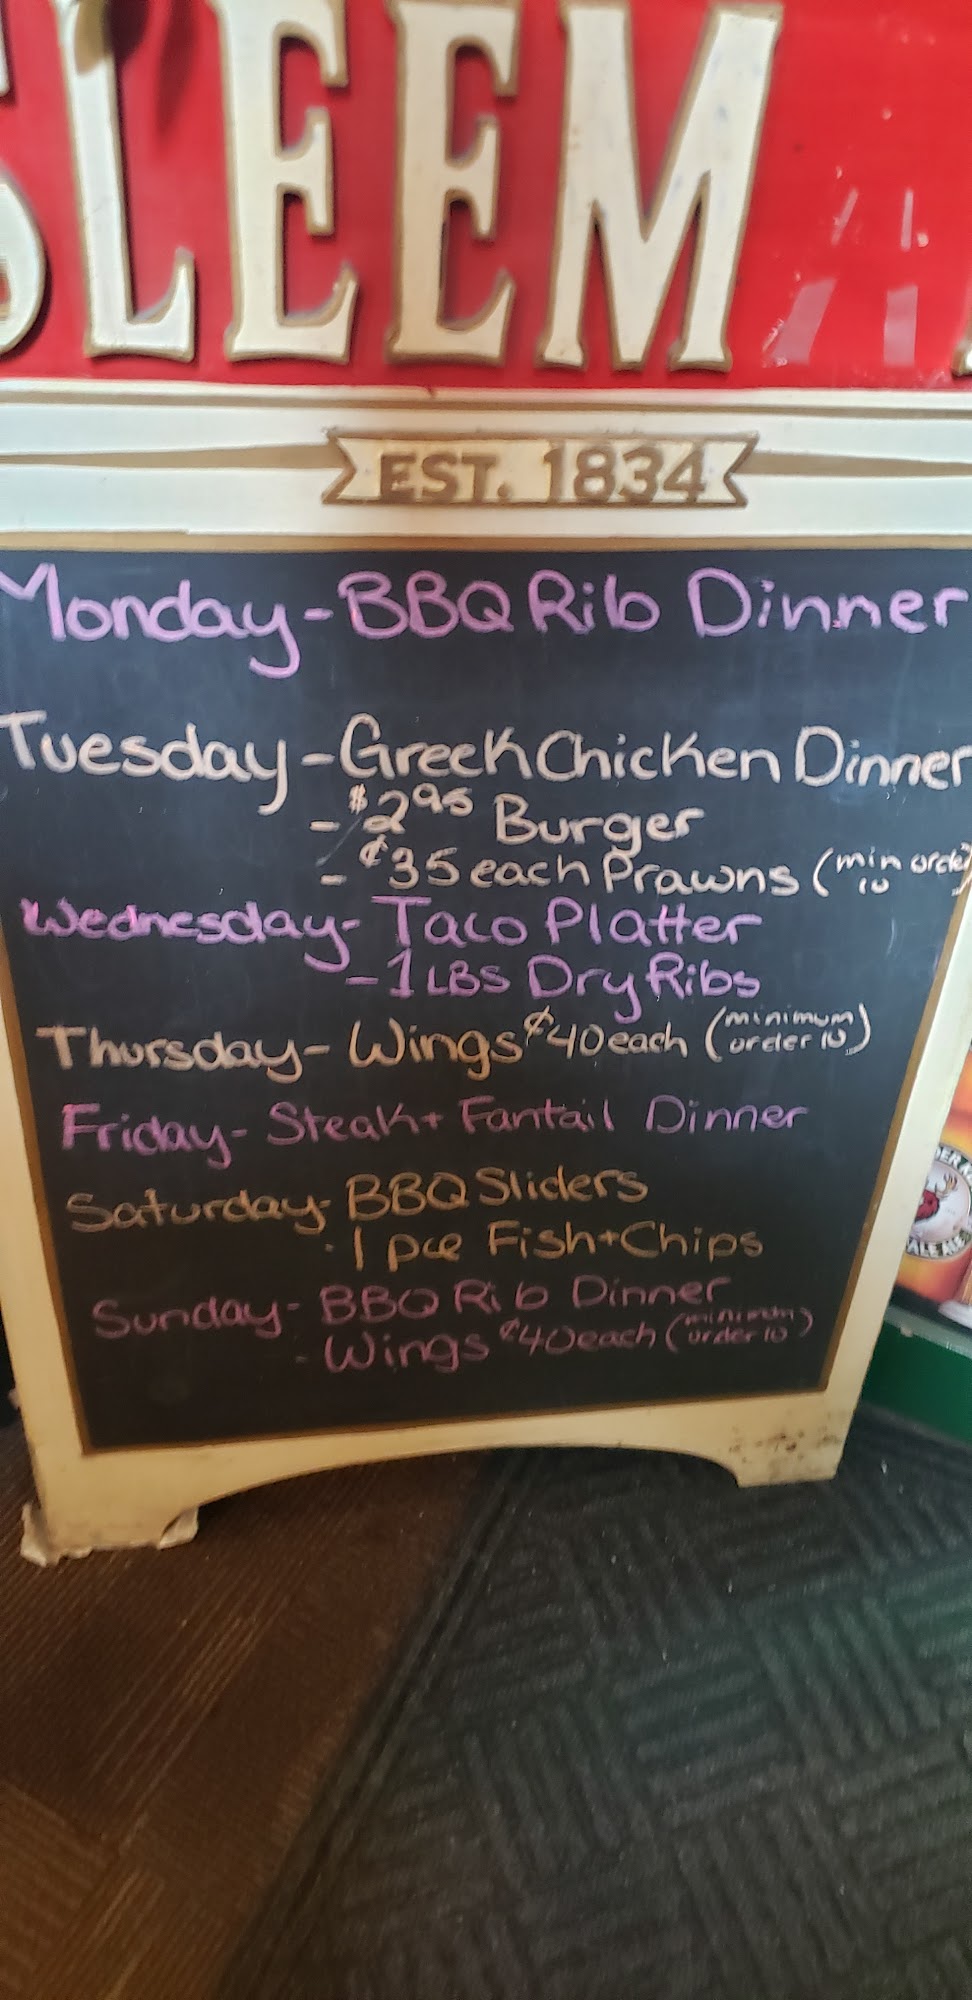 SLEEM
EST. 1834
Monday-BBQ Rib Dinner
Tuesday-Greek Chicken Dinner
- $2.95 Burger
- ¢35 each Prawns (min order 10
Wednesday- Taco Platter
- 1 LBS Dry Ribs
Thursday- Wings ¢40 each (minimum order 10)
Friday- Steak + Fantail Dinner
Saturday- BBQ Sliders
- 1 pce Fish + Chips
Sunday- BBQ Rib Dinner
- Wings ¢40 each (minimum order 10)
ALE ALE